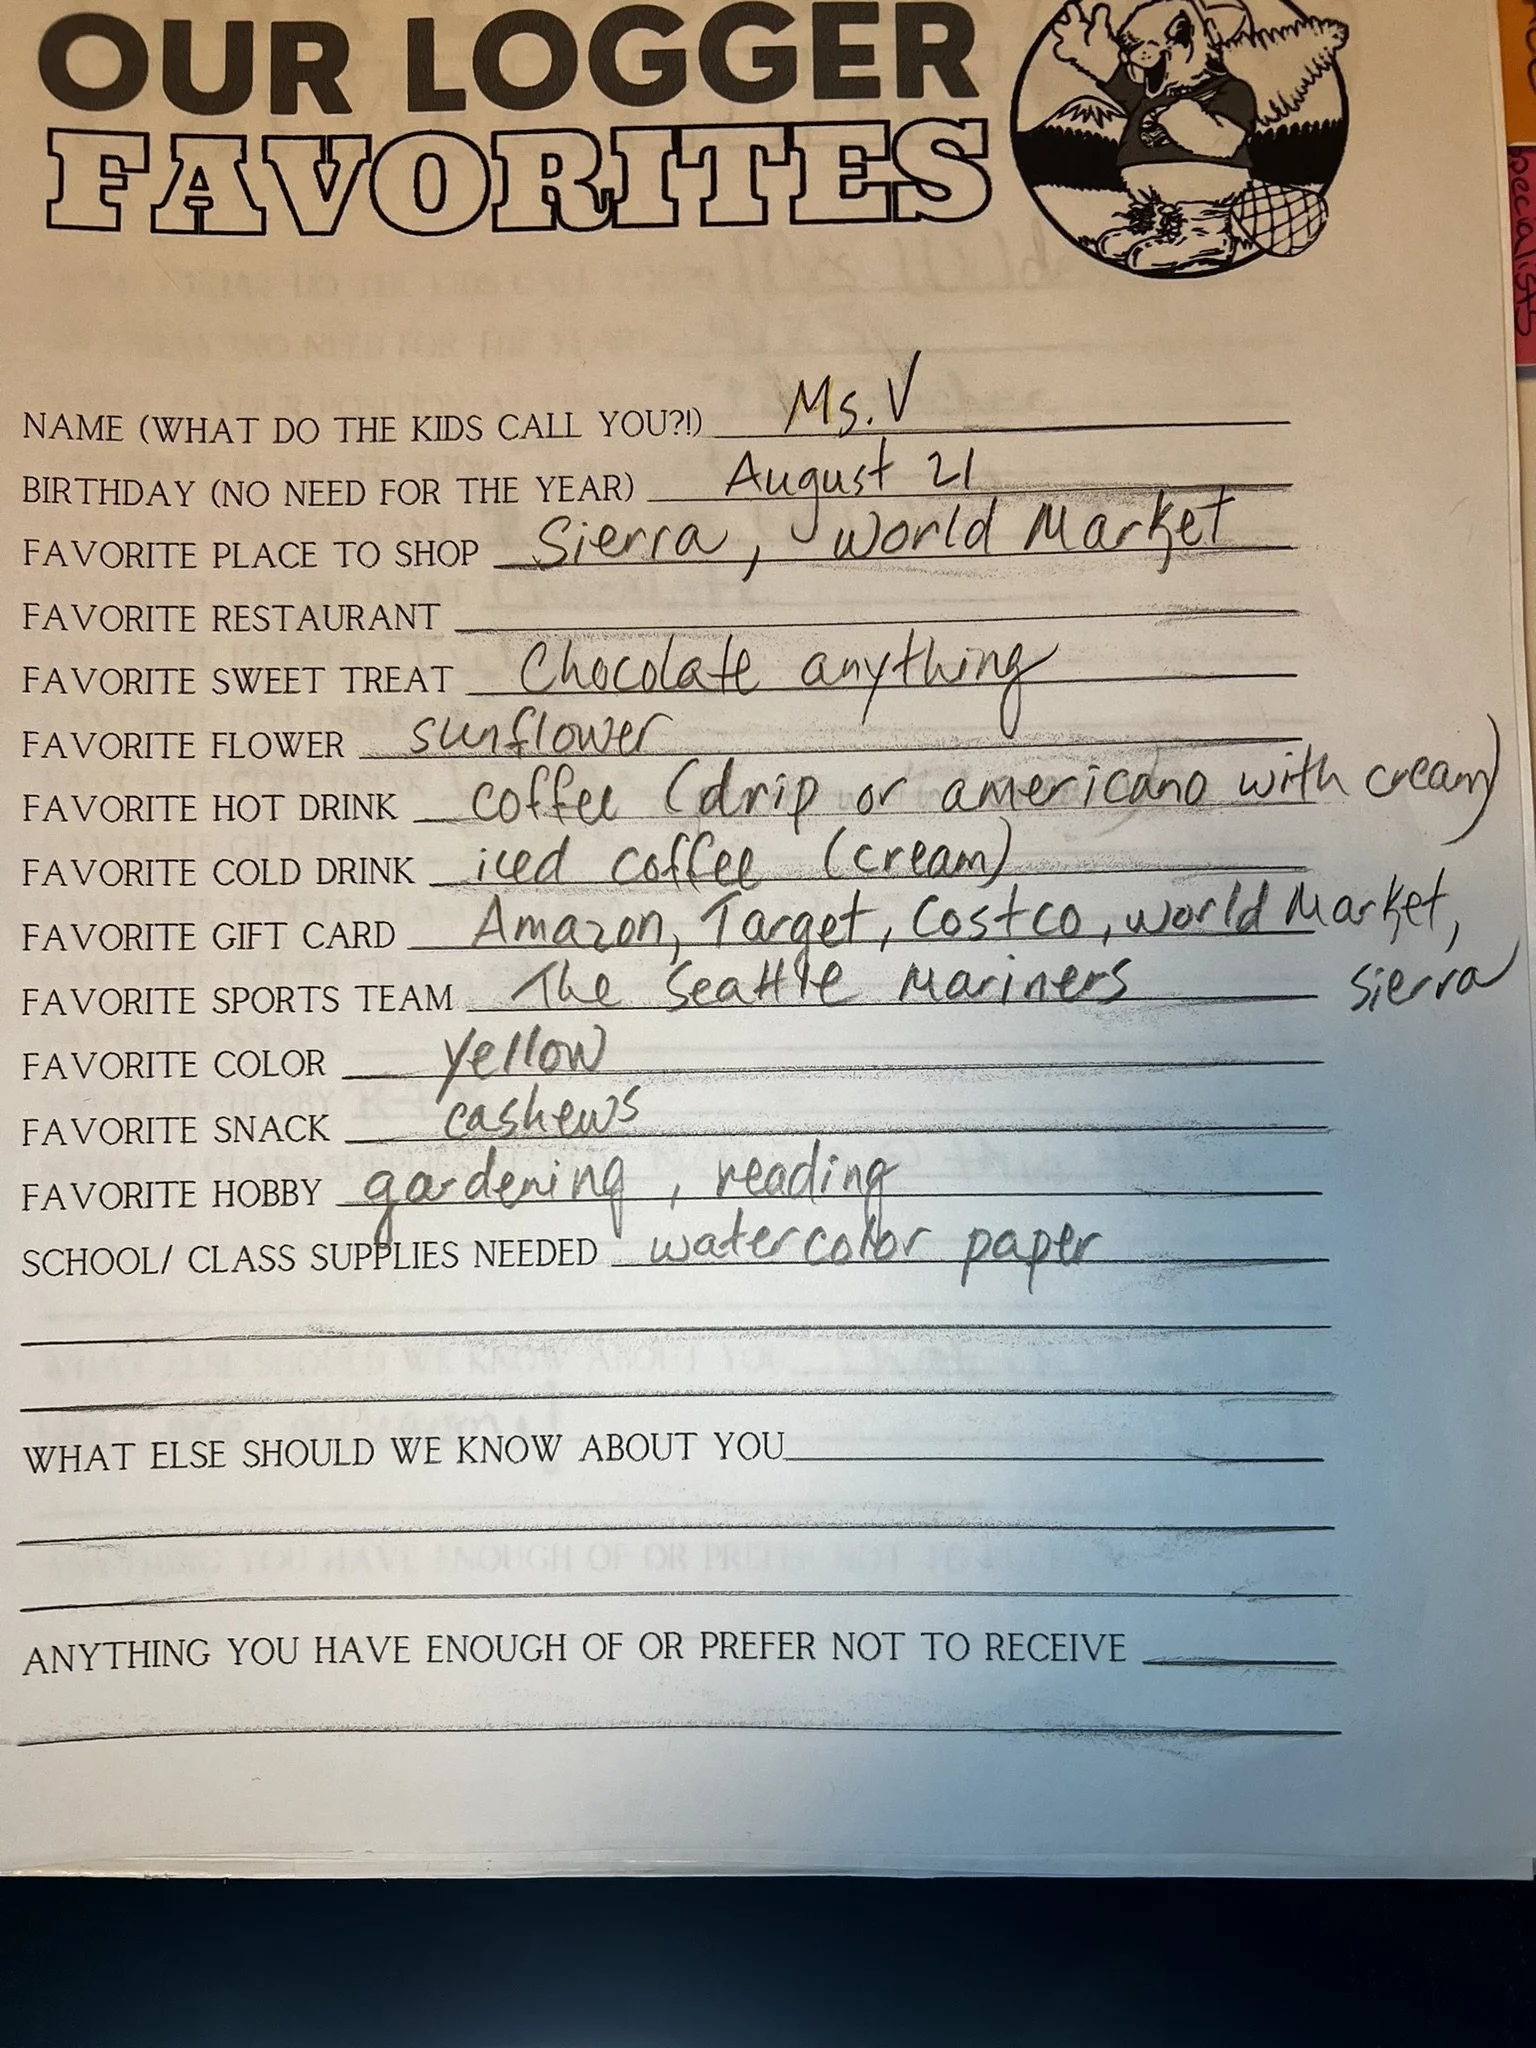 OUR LOGGER
FAVORITES
NAME (WHAT DO THE KIDS CALL YOU?!) Ms. V
BIRTHDAY (NO NEED FOR THE YEAR) August 21
FAVORITE PLACE TO SHOP Sierra, World Market
FAVORITE RESTAURANT
FAVORITE SWEET TREAT Chocolate anything
FAVORITE FLOWER sunflower
FAVORITE HOT DRINK coffee (drip or americano with cream)
FAVORITE COLD DRINK iced coffee (cream)
FAVORITE GIFT CARD Amazon, Target, Costco, World Market,
Sierra
FAVORITE SPORTS TEAM The Seattle Mariners
FAVORITE COLOR yellow
FAVORITE SNACK cashews
FAVORITE HOBBY gardening, reading
SCHOOL/ CLASS SUPPLIES NEEDED watercolor paper
WHAT ELSE SHOULD WE KNOW ABOUT YOU
ANYTHING YOU HAVE ENOUGH OF OR PREFER NOT TO RECEIVE
specialists